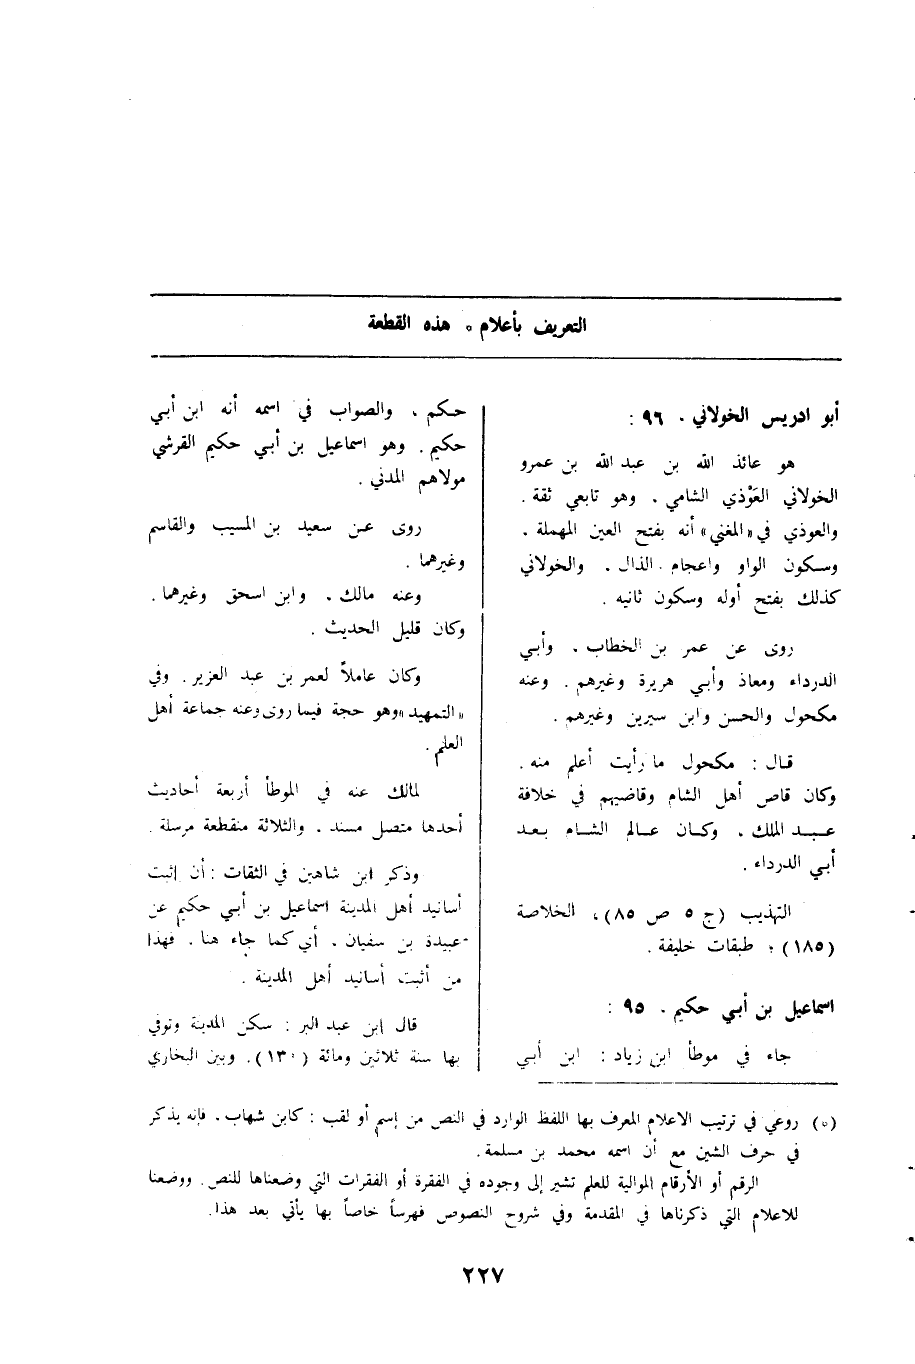 التعريف بأعلام ٥ هذه القطعة
أبو ادريس الخولاني . ٩٦ :
هو عائذ الله بن عبد الله بن عمرو
الخولاني العَوْذي الشامي . وهو تابعي ثقة .
والعوذي في «المغني» أنه بفتح العين المهملة .
وسكون الواو واعجام الذال . والخولاني
كذلك بفتح أوله وسكون ثانيه .
روى عن عمر بن الخطاب . وأبي
الدرداء ومعاذ وأبي هريرة وغيرهم . وعنه
مكحول والحسن وابن سيرين وغيرهم .
قال : مكحول ما رأيت أعلم منه .
وكان قاص أهل الشام وقاضيهم في خلافة
عبد الملك . وكان عالم الشام بعد
أبي الدرداء .
التهذيب (ج ٥ ص ٨٥)، الخلاصة
(١٨٥) ؛ طبقات خليفة .
اسماعيل بن أبي حكيم . ٩٥ :
جاء في موطأ ابن زياد : ابن أبي
حكم ، والصواب في اسمه أنه ابن أبي
حكيم . وهو اسماعيل بن أبي حكيم القرشي
مولاهم المدني .
روى عن سعيد بن المسيب والقاسم
وغيرهما .
وعنه مالك . وابن اسحق وغيرهما .
وكان قليل الحديث .
وكان عاملاً لعمر بن عبد العزيز . وفي
«التمهيد» وهو حجة فيما روى وعنه جماعة أهل
العلم .
لمالك عنه في الموطأ أربعة أحاديث
أحدها متصل مسند . والثلاثة منقطعة مرسلة .
وذكر ابن شاهين في الثقات : أن إثبت
أسانيد أهل المدينة اسماعيل بن أبي حكيم عن
عبيدة بن سفيان . أي كما جاء هنا . فهذا
من أثبت أسانيد أهل المدينة .
قال إبن عبد البر : سكن المدينة وتوفي
بها سنة ثلاثين ومائة (١٣٠). وبين البخاري
(٥) روعي في ترتيب الاعلام المعرف بها اللفظ الوارد في النص من إسم أو لقب : كابن شهاب . فإنه يذكر
في حرف الشين مع أن اسمه محمد بن مسلمة .
الرقم أو الأرقام الموالية للعلم تشير إلى وجوده في الفقرة أو الفقرات التي وضعناها للنص . ووضعنا
للاعلام التي ذكرناها في المقدمة وفي شروح النصوص فهرساً خاصاً بها يأتي بعد هذا.
٢٢٧